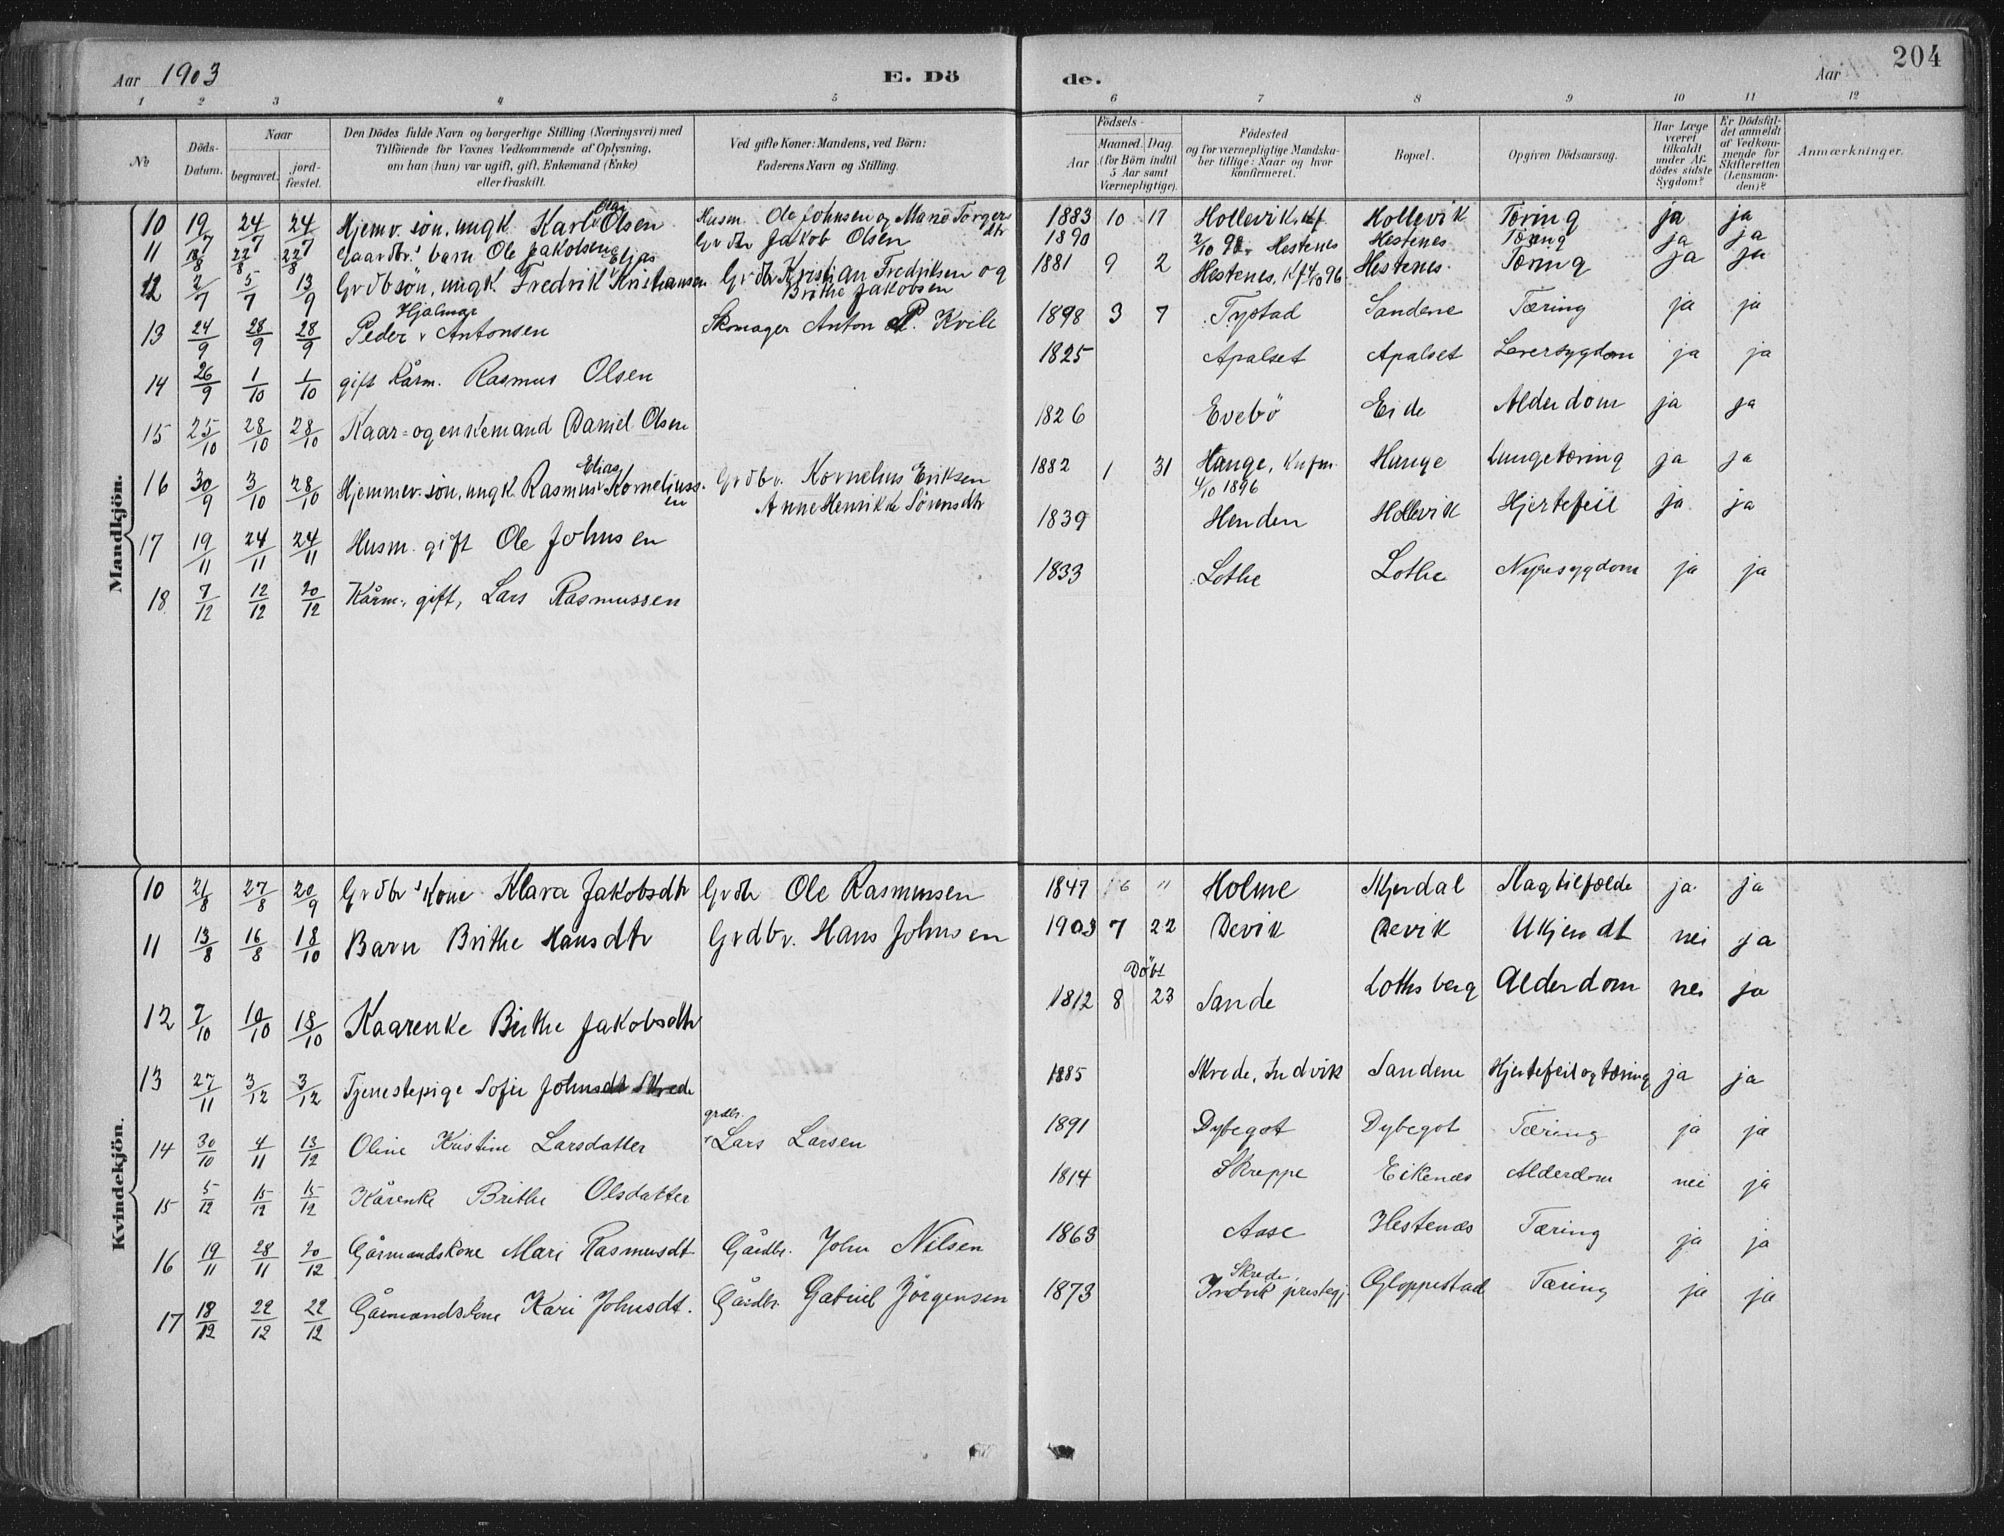 Aar 1903 E. Dö de. Aar 204
1 2 3 4 5 6 7 8 9 10 11 12
No
Döds-Datum.
Naar
begravet.
jord-fæstet.
Den Dödes fulde Navn og borgerlige Stilling (Næringsvei) med
Tilföiende for Voxnes Vedkommende af Oplysning,
om han (hun) var ugift, gift, Enkemand (Enke)
eller fraskilt.
Ved gifte Koner: Mandens, ved Börn:
Faderens Navn og Stilling.
Födsels-
Aar
Maaned. Dag.
(for Börn indtil
5 Aar samt
Værnepligtige).
Födested
og for værnepligtige Mandska-
ber tillige: Naar og hvor
konfirmeret.
Bopæl.
Opgiven Dödsaarsag.
Har Læge
været
tilkaldt
under Af-
dödes sidste
Sygdom?
Er Dödsfal-
det anmeldt
af Vedkom-
mende for
Skifteretten
(Lensman-
den)?
Anmærkninger.
Mandkjön.
10 19/7 24/7 24/7 Hjemv. søn, ungk. Karl Olai Olsen Husm. Ole Johnsen og Torgersdtr 1883 10 17 Hollevik Hollevik Tæring ja ja
11 18/8 22/8 22/8 Gaardbr's barn Ole Jakobsen Grdbr Jakob Olsen 1890 Hestenes Hestenes Tæring ja ja
12 2/7 5/7 13/9 Grdb søn, ungk. Fredrik Elias Kristiansen Grdbr Kristian Fredriksen og Brithe Jakobsen 1881 9 2 Hestenes, Kf 4/10 96 Hestenes Tæring ja ja
13 24/9 28/9 28/9 Peder Hjalmar Antonsen Skomager Anton P. Kvile 1898 3 7 Tystad Sandene Tæring ja ja
14 26/9 1/10 1/10 gift Kårm. Rasmus Olsen 1825 Apalset Apalset Leversygdom ja ja
15 25/10 28/10 28/10 Kaar- og enkemand Daniel Olsen 1826 Evebö Eide Alderdom ja ja
16 30/9 3/10 28/10 Hjemmev. søn, ungk. Rasmus Elias Korneliussen Grdbr. Kornelius Eriksen Anne Henrikke Sörensdtr 1882 1 31 Hauge, Knfm. 4/10 1896 Hauge Lungetæring ja ja
17 19/11 24/11 24/11 Husm. gift Ole Johnsen 1839 Henden Hollevik Hjertefeil ja ja
18 7/12 12/12 20/12 Kårm., gift, Lars Rasmussen 1833 Lothe Lothe Nyresygdom ja ja
Kvindekjön.
10 21/8 27/8 20/9 Grdbr's Kone Klara Jakobsdtr Grdbr Ole Rasmussen 1847 6 " Holme Mjerdal Slagtilfælde ja ja
11 13/8 16/8 18/10 Barn Brithe Hansdtr Grdbr. Hans Johnsen 1903 7 22 Devik Devik Ukjendt nei ja
12 7/10 10/10 18/10 Kaarenke Brithe Jakobsdtr 1812 Döbt 8 23 Sande Lothsberg Alderdom nei ja
13 27/11 3/12 3/12 Tjenestepige Sofie Johnsdt Skrede 1885 Skrede, Indvik Sandene Hjertefeil og tæring ja ja
14 30/10 4/11 13/12 Oline Kristine Larsdatter grdbr. Lars Larsen 1891 Dybegot Dybegot Tæring ja ja
15 5/12 15/12 15/12 Kårenke Brithe Olsdatter 1814 Skreppe Eikenæs Alderdom nei ja
16 19/11 28/11 20/12 Gårmandskone Mari Rasmusdt Gårdbr. John Nilsen 1863 Aase Hestenæs Tæring ja ja
17 18/12 22/12 22/12 Gårmandskone Kari Johnsdt. Gårdbr. Gabriel Jörgensen 1873 Skrede, Indvik prestegj Gloppestad Tæring ja ja